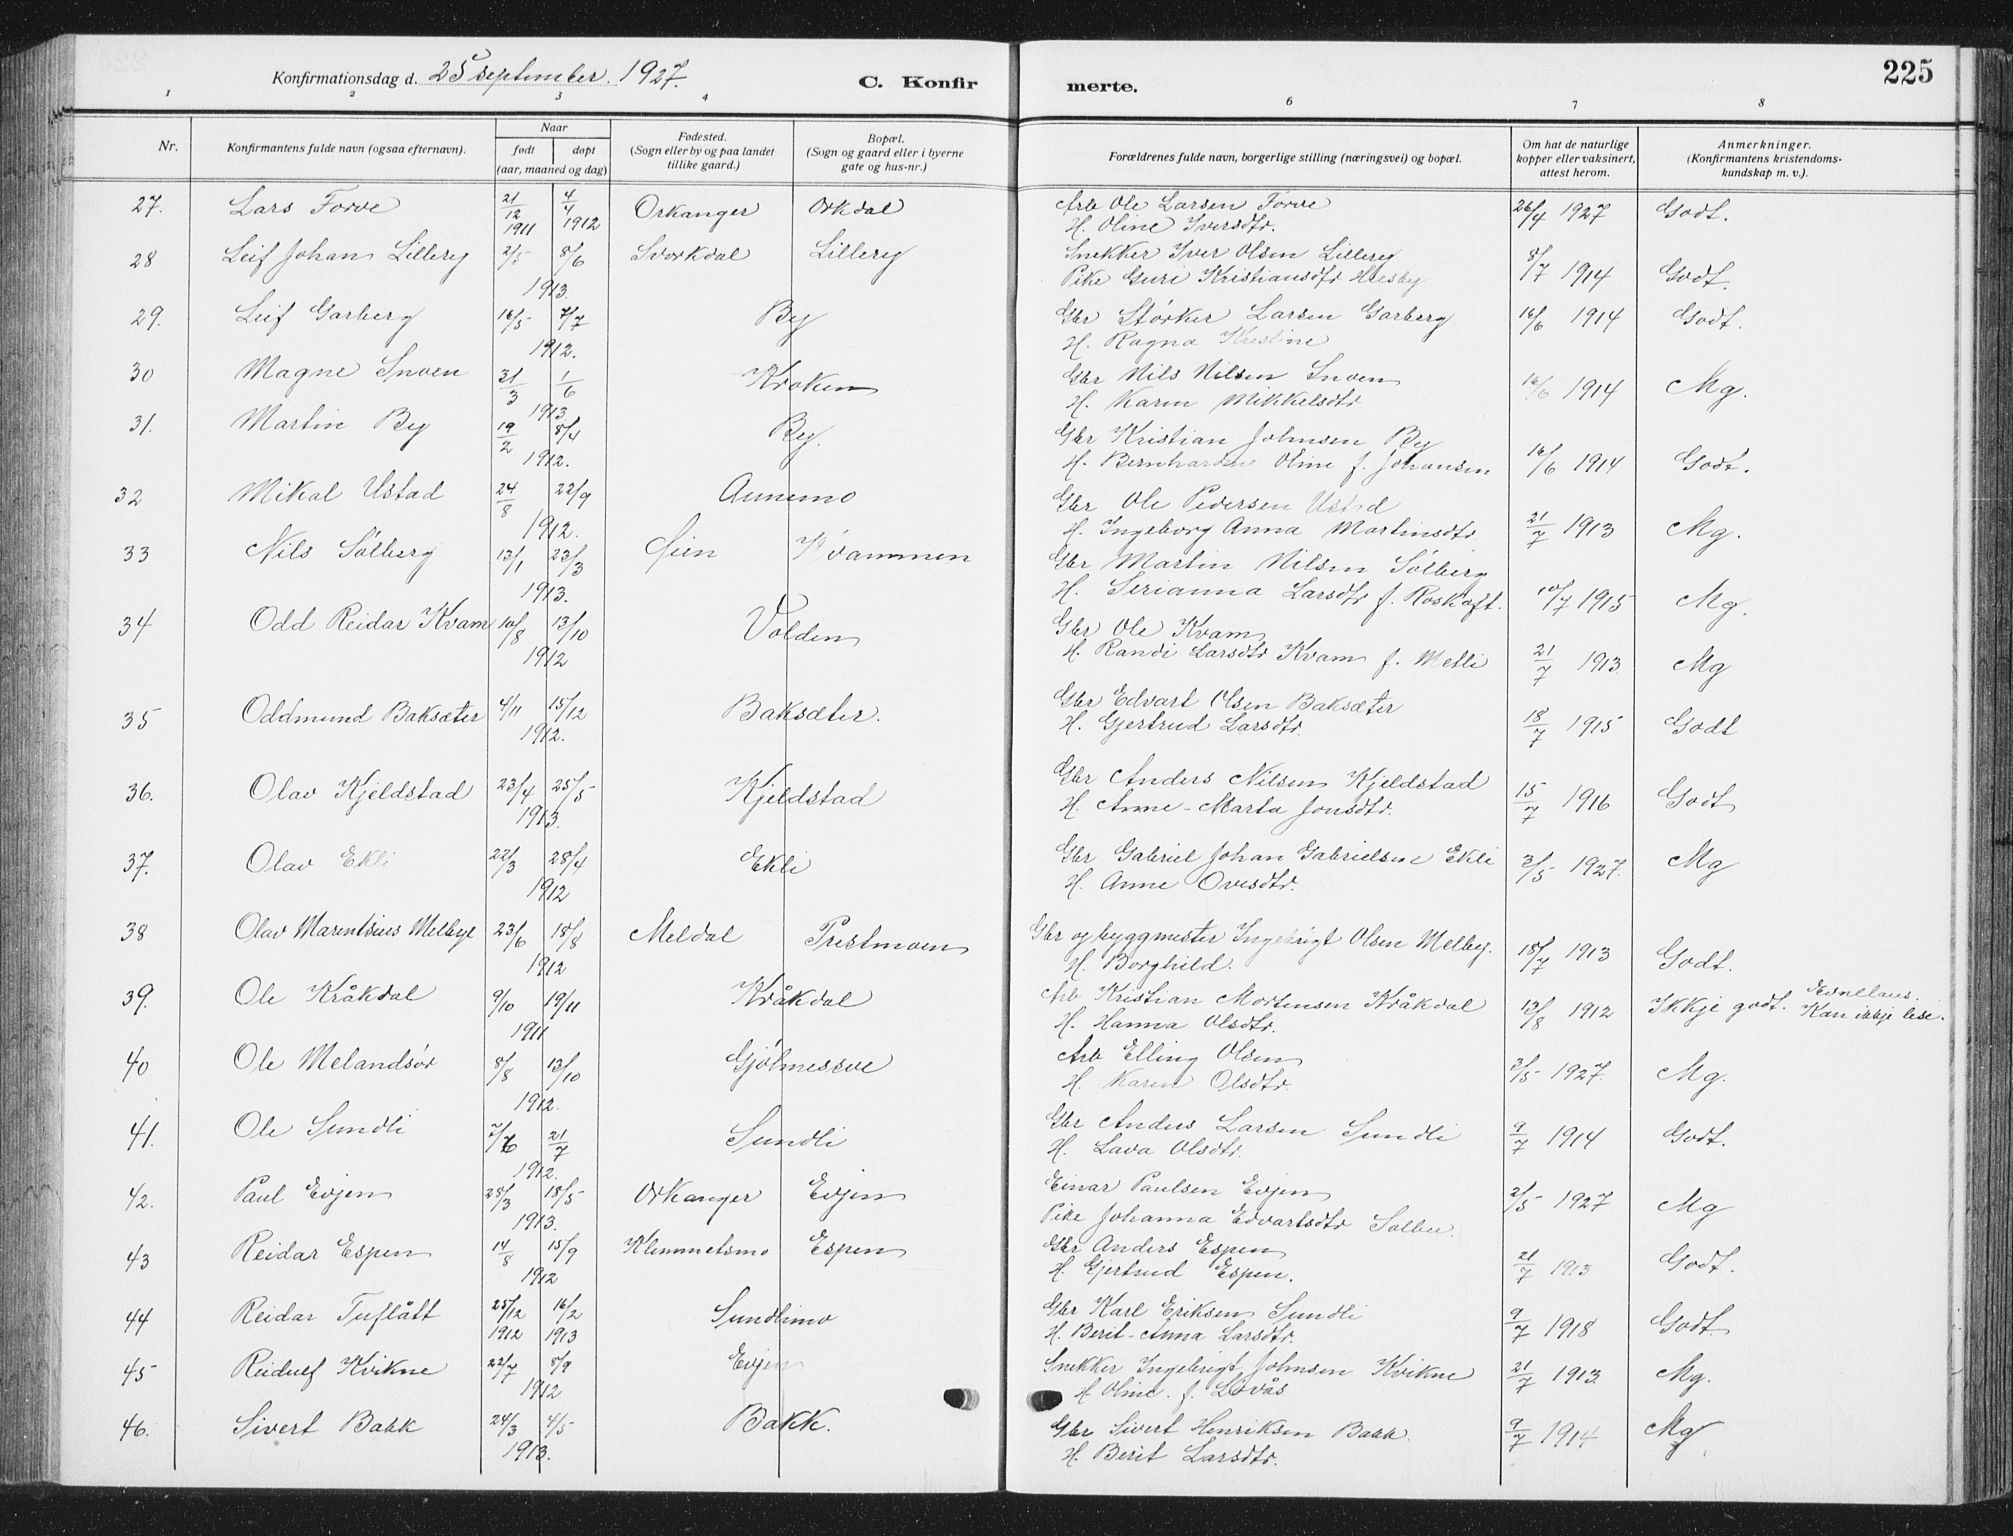 225
Konfirmationsdag d. 25 september 1927.
C. Konfirmerte.
1 2 3 4 6 7 8
Nr. Konfirmantens fulde navn (ogsaa efternavn). Naar født døpt (aar, maaned og dag) Fødested. (Sogn eller by og paa landet tillike gaard.) Bopæl. (Sogn og gaard eller i byerne gate og hus-nr.) Forældrenes fulde navn, borgerlige stilling (næringsvei) og bopæl. Om hat de naturlige kopper eller vaksinert, attest herom. Anmerkninger. (Konfirmantens kristendoms-kundskap m. v.).
27. Lars Forve 21/12 1911 4/4 1912 Orkanger Orkdal Arb Ole Larsen Forve 26/4 1927 Godt.
H. Oline Iversdtr.
28 Leif Johan Lillery 2/5 8/6 Svorkdal Lillery Snekker Iver Olsen Lillery 8/7 1914 Godt.
1913. Pike Guri Kristiansdtr
29. Leif Garberg 16/5 7/7 By Gbr Størker Larsen Garberg 16/6 1914 Godt.
1912. H. Ragna Kristine
30 Magne Snoen 31/3 1/6 Kroken Gbr Nils Nilsen Snoen 16/6 1914 Mg.
1913 H. Karen Mikkelsdtr
31. Martin By 19/2 8/4 By. Gbr Kristian Johnsen By 16/6 1914 Godt.
1912. H. Bernhardine Oline f. Johansen
32 Mikal Ustad 24/8 22/9 Aunemo Gbr Ole Pedersen Ustad 21/7 1913 Mg.
1912. H. Ingeborg Anna Martinsdtr
33 Nils Sølberg 13/1 23/3 Kvammen Gbr Martin Nilsen Sølberg 10/7 1915 Mg.
1913. H. Serianna Larsdtr f. Roskaft.
34 Odd Reidar Kvam 10/8 13/10 Volden Gbr Ole Kvam 21/7 1913 Mg
1912 H. Randi Larsdtr Kvam f. Metli
35 Oddmund Baksæter 4/11 15/12 Baksæter. Gbr Edvart Olsen Baksæter 18/7 1915 Godt
1912. H. Gjertrud Larsdtr.
36. Olav Kjeldstad 23/4 25/5 Kjeldstad Gbr Anders Nilsen Kjeldstad 15/7 1916 Godt
1913. H. Anne-Marta Jonsdtr.
37. Olav Ekli 22/3 28/4 Ekli Gbr Gabriel Johan Gabrielsen Ekli 3/5 1927. Mg
1912 H. Anne Ovesdtr.
38 Olav Marentsius Melbye 23/6 18/8 Meldal Prestmoen Gbr og byggmester Ingebrigt Olsen Melby. 18/7 1913 Godt.
1912 H. Borghild.
39. Ole Kråkdal 9/10 19/11 Kråkdal Arb Kristian Mortensen Kråkdal 13/8 1912 Ikkje godt. Evnelaus. Kan ikkje lese.
1911 H. Hanna Olsdtr.
40 Ole Melandsør 8/8 13/10 Gjølmesøve Arb Elling Olsen 3/5 1927. Mg.
1912. H. Karen Olsdtr.
41. Ole Sundli 7/6 21/7 Sundli Gbr Anders Larsen Sundli 9/7 1914 Godt.
1912. H. Lava Olsdtr.
42. Paul Evjen 28/3 18/5 Orkanger Evjen Einar Paulsen Evjen 2/5 1927 Mg
1913. Pike Johanna Edvartsdtr Solbu.
43 Reidar Espen 14/8 15/9 Klemmetsmo Espen Gbr Anders Espen 21/7 1913 Godt.
1912 H. Gjertrud Espen.
44 Reidar Tuflått 25/12 1912 16/2 1913 Sundlimo Gbr Karl Eriksen Sundli 9/7 1918 Godt
H. Berit-Anna Larsdtr.
45 Reidulf Kvikne 22/7 8/9 Evjen Snekker Ingebrigt Johnsen Kvikne 21/7 1913. Mg.
1912 H Oline. f. Løvås
46. Sivert Bakk 24/3 4/5 Bakk. Gbr Sivert Henriksen Bakk. 9/7 1914 Mg
1913. H. Berit Larsdtr.